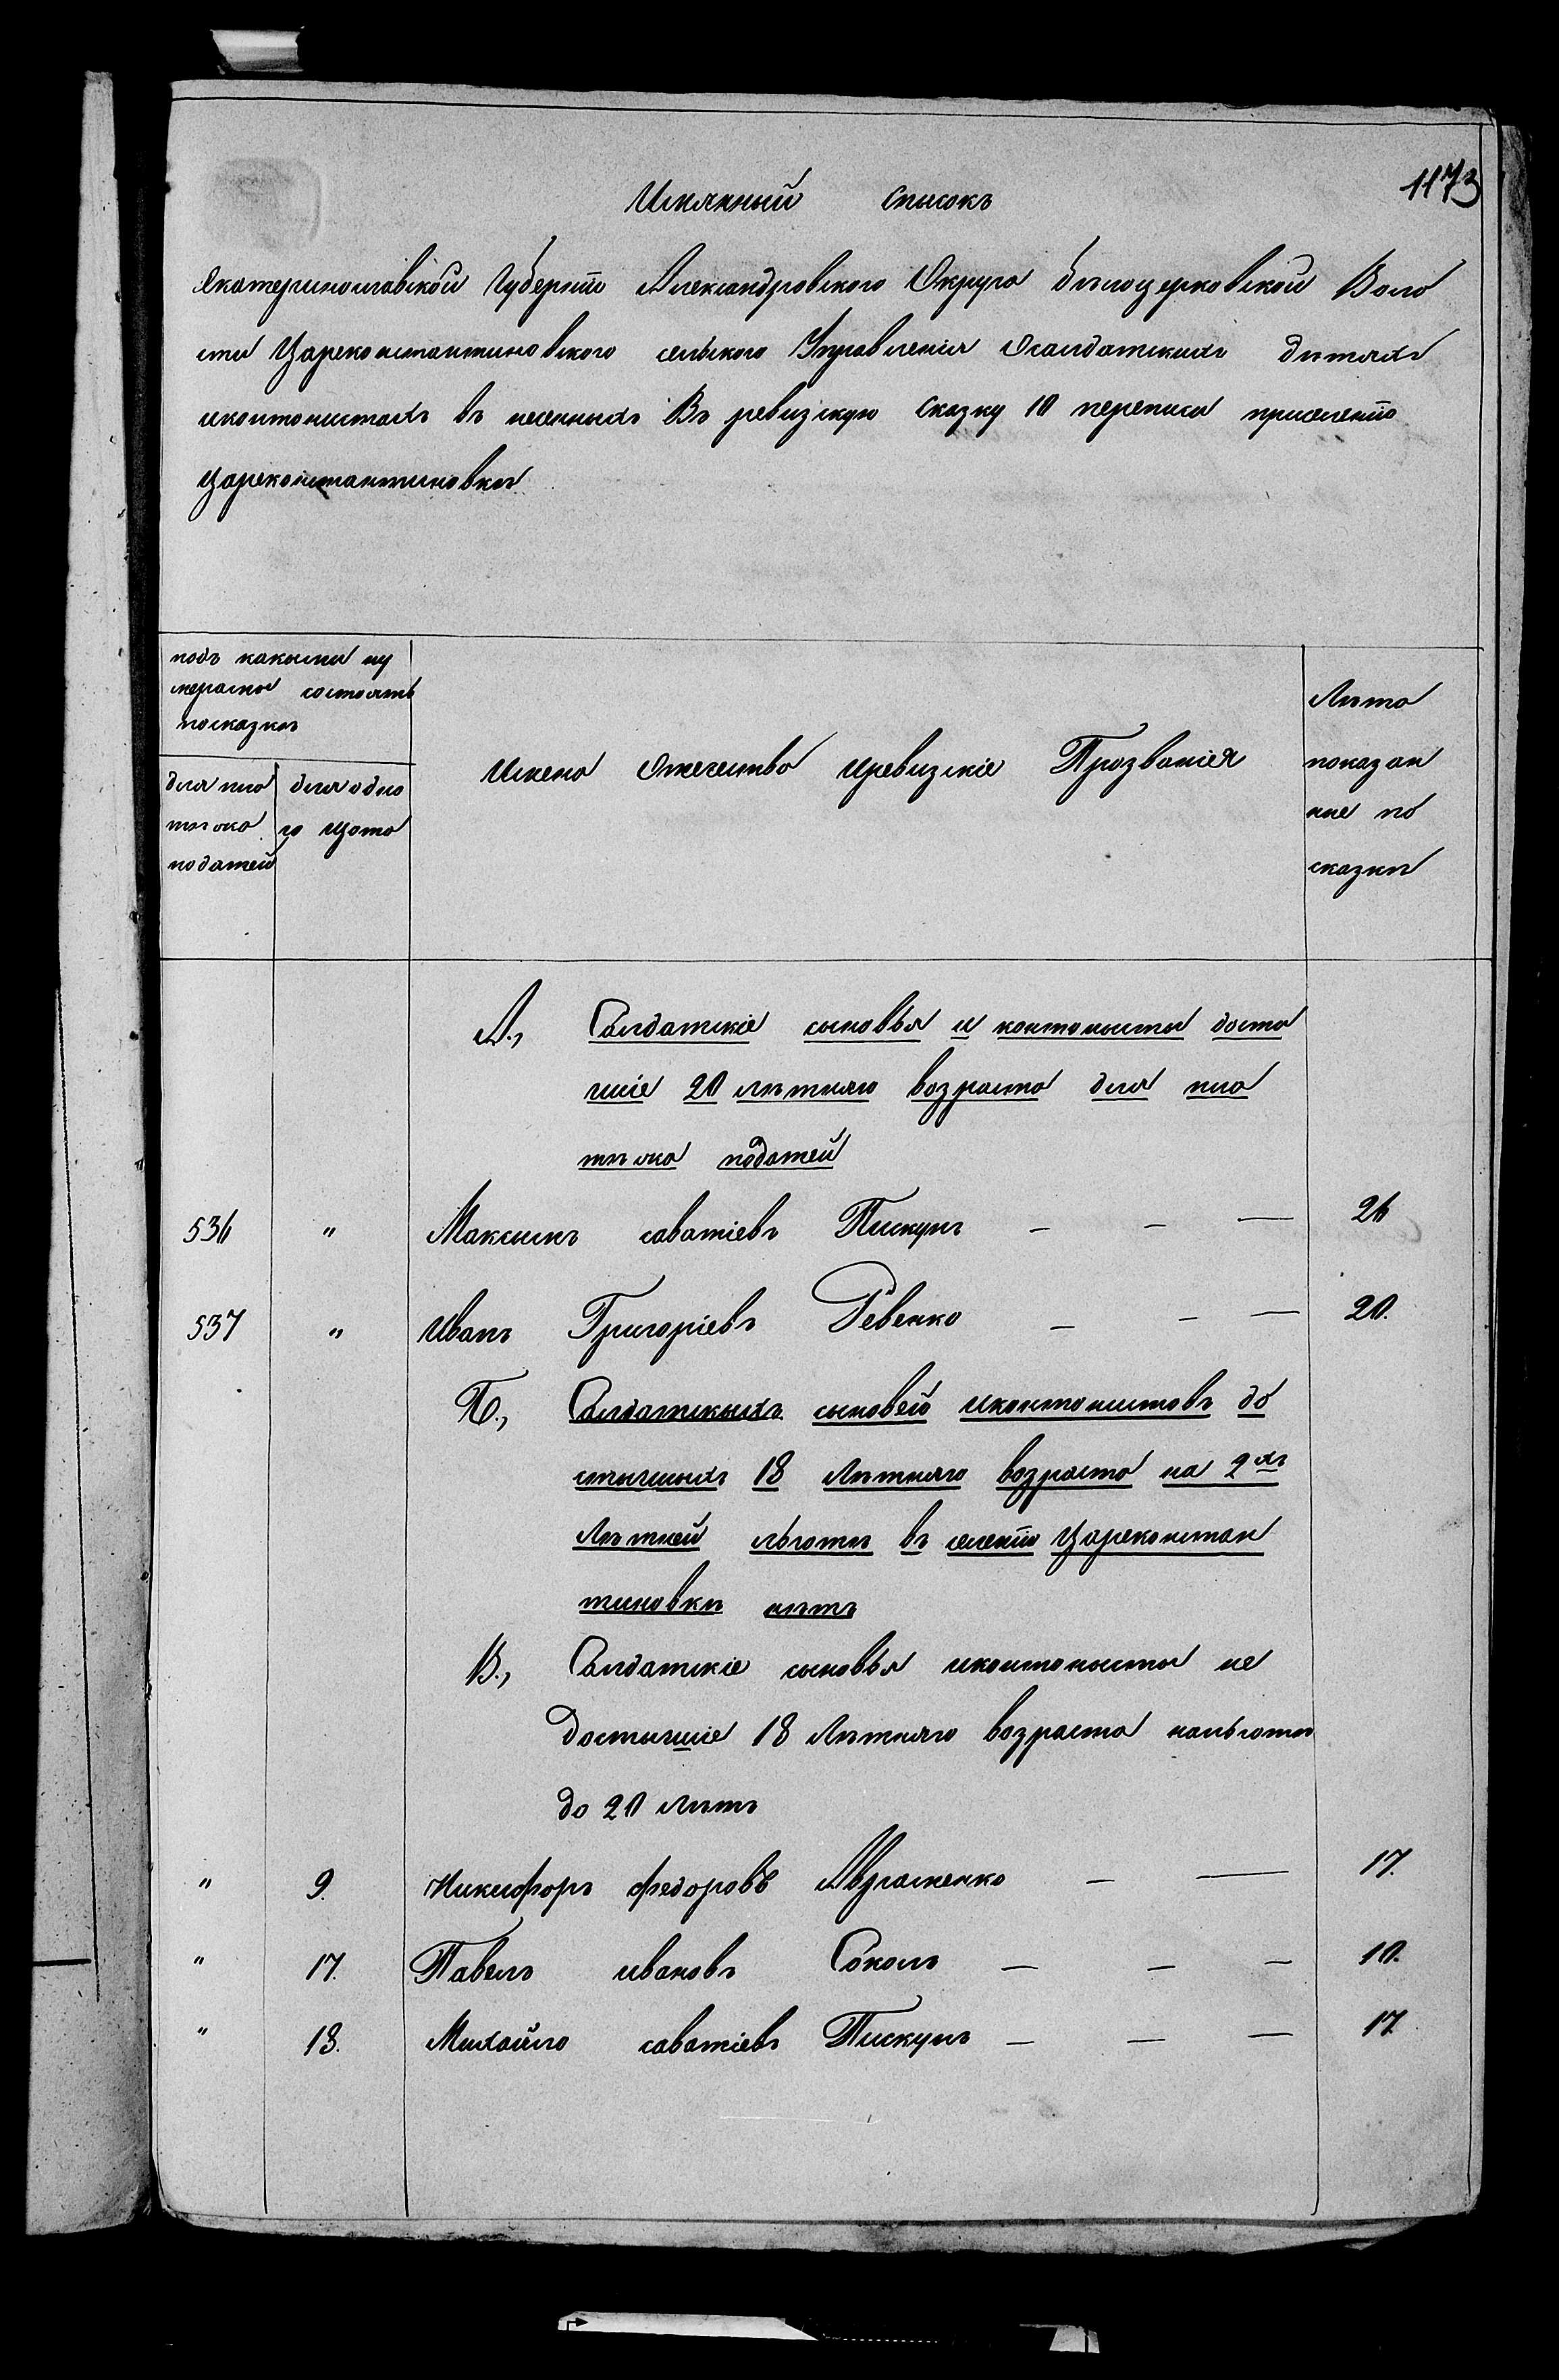 1173
Имянный списокъ
Екатеринославской Губерніи Александровского Округа бѣлоцерковской Воло
сти Цареконстантиновского сельского Управленія Осалдатскихъ дѣтяхъ
иконтонистахъ въ несенныхъ Въ ревизскую Сказку 10 переписи приселеніи
Цареконстантиновки
подъ какыми ну
мерами состоятъ
посказкѣ
Лѣта
показан
ные по
сказкѣ
Имена Отечество иревизскіе Прозванія
для пла
тежа
податей
для одно
го щота
А., Салдатскіе сыновья и контонисты дости
гшіе 20 лѣтняго возраста для пла
тежа податей
536 " Максымъ саватіевъ Пискунъ — — — 26
537 " Иванъ Григоріевъ Ревенко — — — 20.
Б., Салдатскыхъ сыновей иконтонистовъ до
стыгшихъ 18 Лѣтняго возраста на 2хъ
Лѣтней льготѣ въ селеніи Цареконстан
тиновкѣ нѣтъ
В., Салдатскіе сыновья иконтонисты не
достыгшіе 18 Лѣтняго возраста нальготѣ
до 20 Лѣтъ
" 9. Никифоръ федоровъ Авраменко — — 17.
" 17. Павелъ ивановъ Соколъ — — — 10.
" 18. Михайло саватіевъ Пискунъ — — — 17.